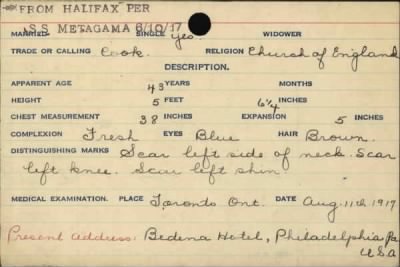 FROM HALIFAX PER
S.S METAGAMA 6/10/17
MARRIED SINGLE Yes. WIDOWER
TRADE OR CALLING Cook. RELIGION Church of England
DESCRIPTION.
APPARENT AGE 43 YEARS MONTHS
HEIGHT 5 FEET 6¼ INCHES
CHEST MEASUREMENT 38 INCHES EXPANSION 5 INCHES
COMPLEXION Fresh EYES Blue HAIR Brown.
DISTINGUISHING MARKS Scar left side of neck. Scar
left knee. Scar left shin
MEDICAL EXAMINATION. PLACE Toronto Ont. DATE Aug. 11th 1917
Present Address: Hotel, Philadelphia Pa
USA